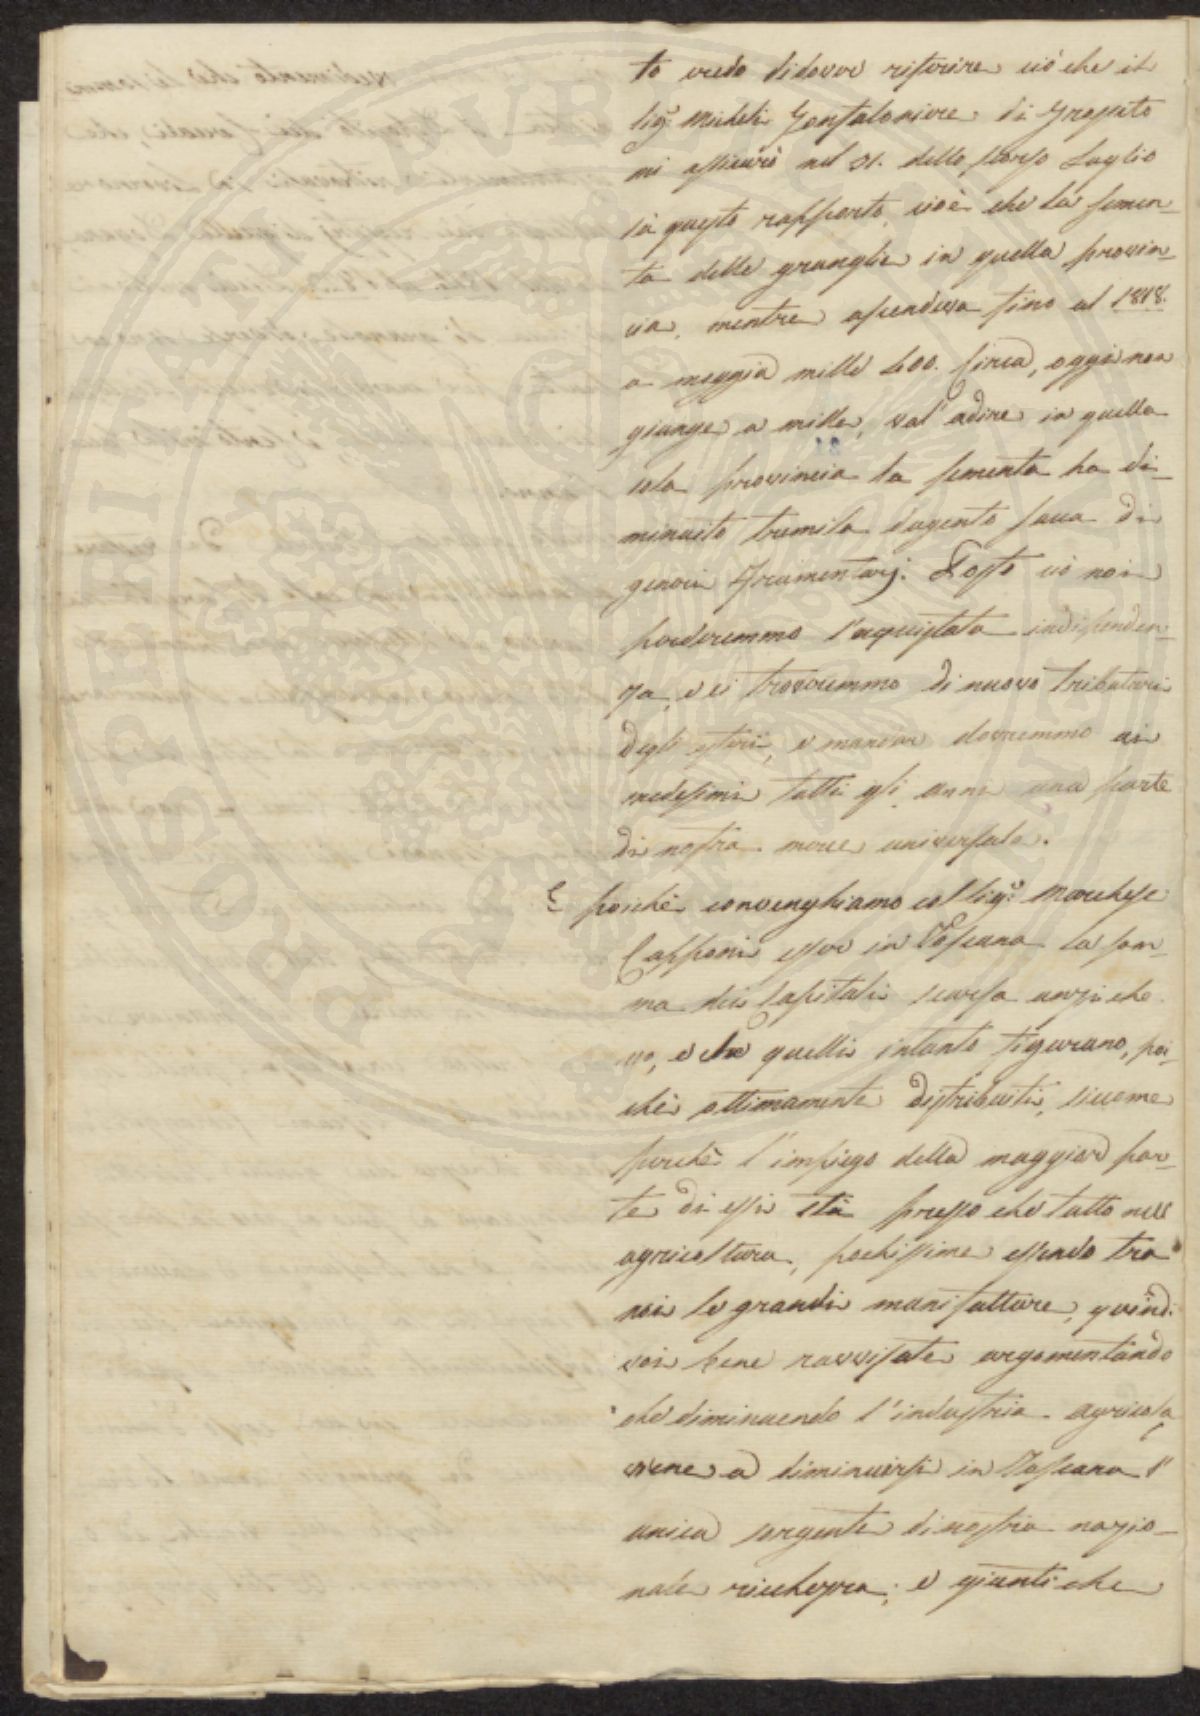 to credo di dover riferire ciò che il
Sigr. Micheli Gonfaloniere di Grosseto
mi assicurò nel 31. dello scorso Luglio
sù questo rapporto, cioè che la semen-
ta delle granaglie in quella provin-
cia, mentre ascendeva fino al 1818.
a moggia mille 400. circa, oggi non
giunge a mille, val' adire in quella
sola provincia la sementa ha di-
minuito tremila dugento sacca di
generi Frumentarj. Posto ciò noi
perderemmo l'acquistata independen-
za, e ci troveremmo di nuovo tributari
degli esteri, e mandar dovremmo ai
medesimi tutti gli anni una parte
di nostra merce universale.
E poichè convenghiamo col Sigr. Marchese
Capponi esser in Toscana la som-
ma dei Capitali scarsa anzi che
nò, e che quelli intanto figurano, poi-
chè ottimamente distribuiti, siccome
perchè l'impiego della maggior par-
te di essi stà presso che tutto nell
agricoltura, pochissime essendo tra
noi le grandi manifatture, quindi
voi bene ravvisate argomentando
che diminuendo l'industria agricola,
viene a diminuirsi in Toscana l'
unica sorgente di nostra nazio-
nale ricchezza; e giunti che
PROSPERITATI PVBLICAE